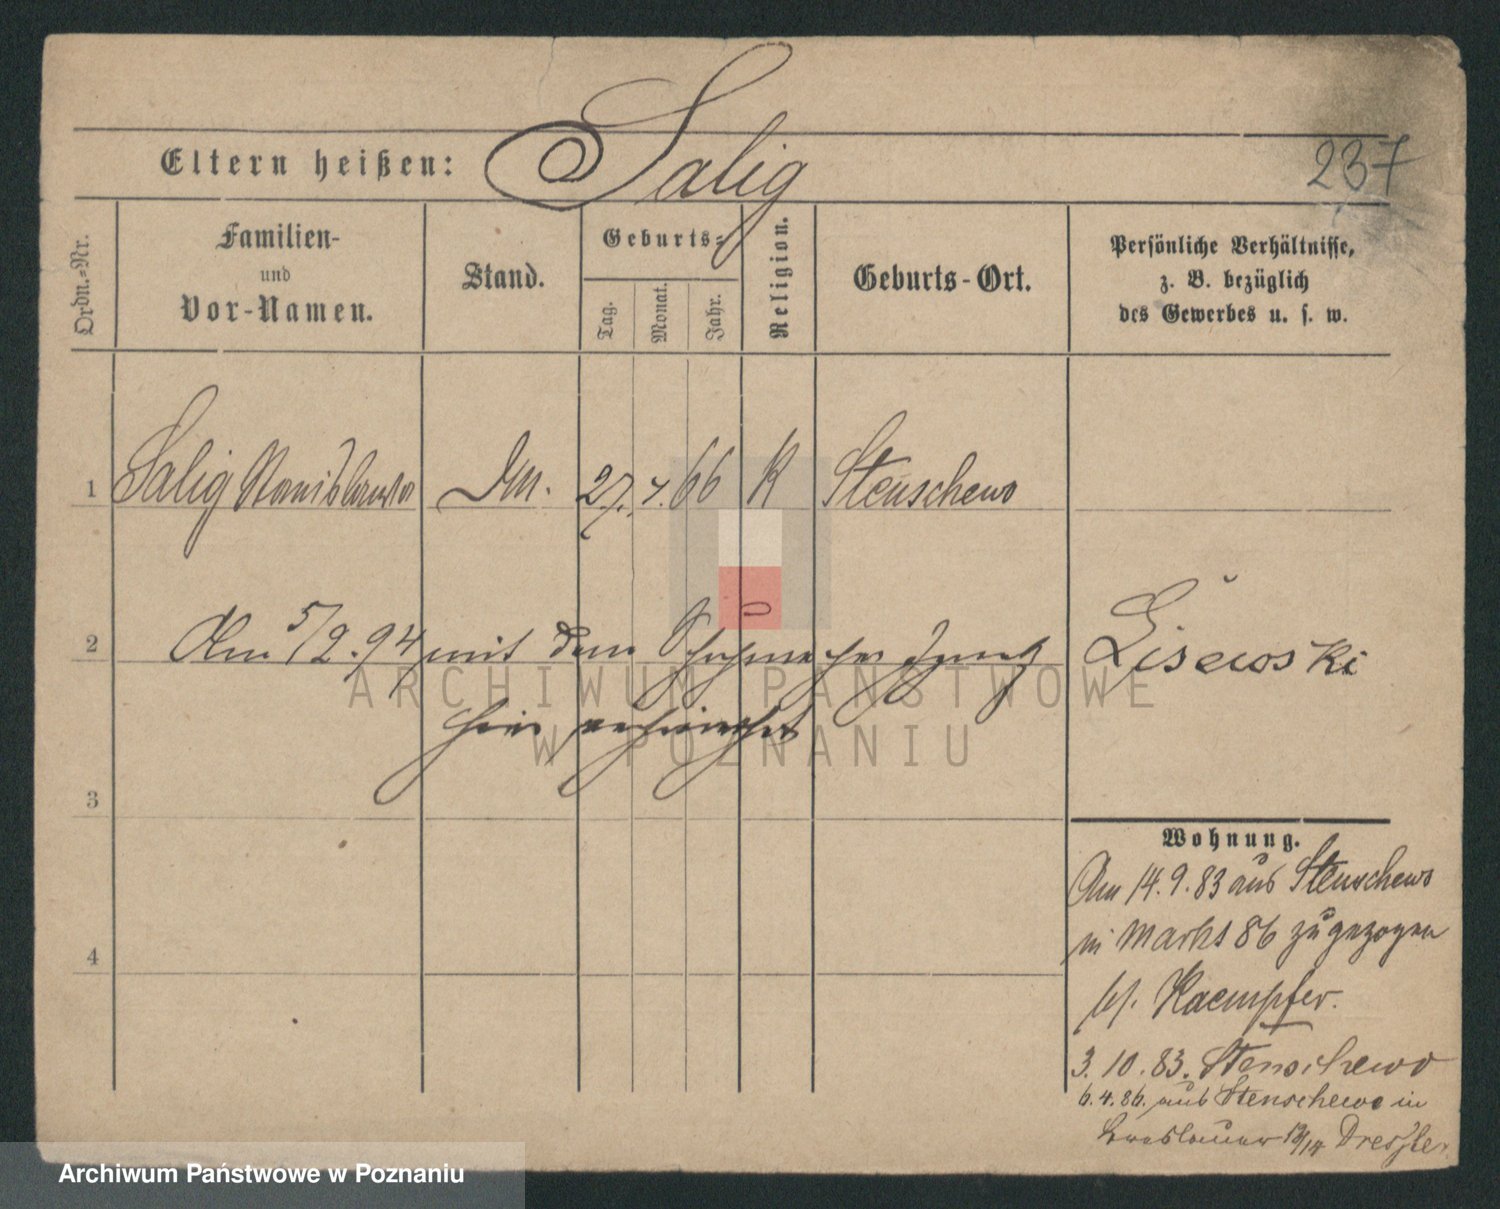 Salig
Eltern heißen:
237
Ordn.=Nr.
Familien-
und
Vor-Namen.
Stand.
Geburts=
Tag.
Monat.
Jahr.
Religion.
Geburts-Ort.
Persönliche Verhältnisse,
z. B. bezüglich
des Gewerbes u. s. w.
1 Salig Stanislawa 27. 4. 66 K Stenschewo
2 Am 5/2.94 mit dem Schuhmacher Ignatz Lisewski
hier verheirathet
3
4
Wohnung.
Am 14.9.83 aus Stenschewo
in Markt 86 zugezogen
bf. Kaempfer.
3.10.83. Stenschewo
6.4.86. aus Stenschewo in
Breslauer 13/14 Dressler
ARCHIWUM PAŃSTWOWE
W POZNANIU
Archiwum Państwowe w Poznaniu